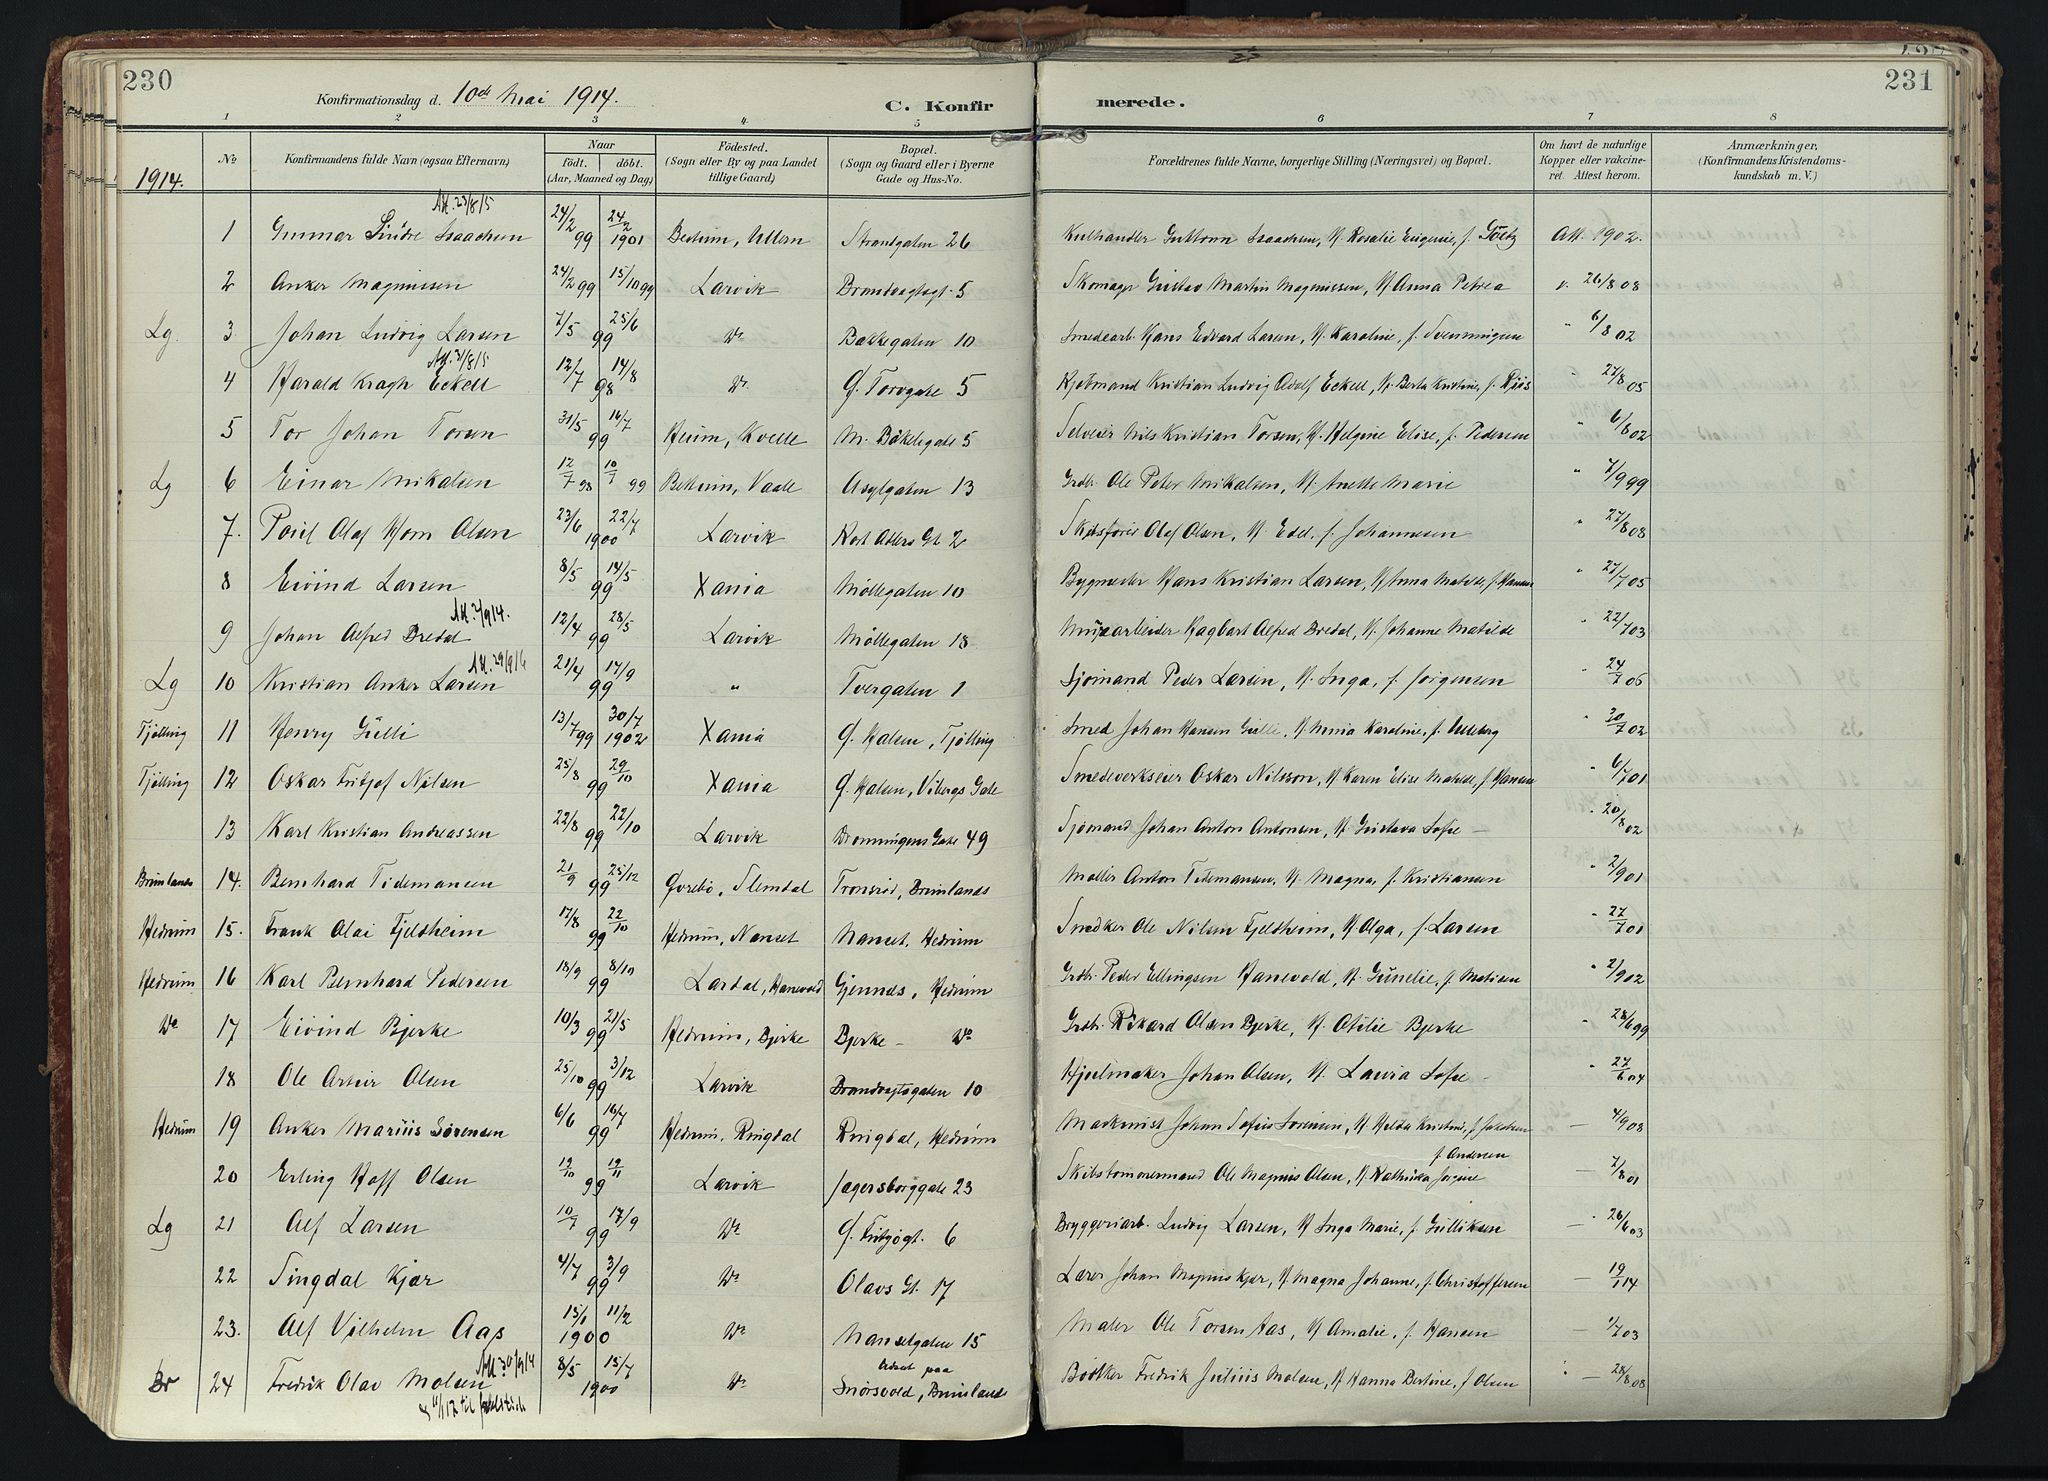 230
Konfirmationsdag d. 10de Mai 1914.
C. Konfir
merede.
231
1 2 3 4 5 6 7 8
No
Konfirmandens fulde Navn (ogsaa Efternavn)
Naar
født. døbt.
(Aar, Maaned og Dag)
Fødested.
(Sogn eller By og paa Landet
tillige Gaard)
Bopæl.
(Sogn og Gaard eller i Byerne
Gade og Hus-No.
Forældrenes fulde Navne, borgerlige Stilling (Næringsvei) og Bopæl.
Om havt de naturlige
Kopper eller vakcine-
ret. Attest herom.
Anmærkninger,
(Konfirmandens Kristendoms-
kundskab m. V.)
1914.
Att. 23/8 15
1 Gunnar Sindre Isaachsen 24/2 99 24/2 1901 Bestum, Ullern Strandgaten 26 Kulhandler Guttorm Isaachsen, H. Rosalie Eugenie, f. Göetz Att. 1902.
2 Anker Magnussen 24/2 99 15/10 99 Larvik Brandvagtsgt. 5 Skomager Gustav Martin Magnussen, H. Anna Petrea v. 26/8 08
Lg. 3 Johan Ludvig Larsen 7/5 25/6 99 Do Bakkegaten 10 Smedearb. Hans Edvard Larsen, H. Karoline, f. Svenningsen " 6/8 02
Att. 31/8 15
4 Harald Kragh Eckell 12/7 14/8 98 Do G. Torvgate 5 Kjøbmand Kristian Ludvig Adolf Eckell, H. Berta Kristine, f. Riis " 27/8 05
5 Tor Johan Torsen 31/5 16/7 99 Heum, Kvelle M. Bøkelegate 5 Selveier Nils Kristian Torsen, H. Helgine Elise, f. Pedersen " 6/8 02
Lg 6 Einar Mikalsen 12/7 98 10/7 99 Bettum, Vaale Asylgaten 13 Grdbr. Ole Peter Mikalsen, H. Anette Marie " 7/9 99
7. Povel Olaf Horn Olsen 23/6 22/7 1900 Larvik Kort Adlers Gt. 2 Skibsfører Olaf Olsen, H. Edel, f. Johannesen " 27/8 08
8 Eivind Larsen 8/5 14/5 99 Xania Møllegaten 10 Bygmester Hans Kristian Larsen, H. Anna Matilde, f. Hansen " 27/7 05
Att. 2/9 14.
9 Johan Alfred Bredal 12/4 28/5 99 Larvik Møllegaten 18 Murarbeider Hagbart Alfred Bredal, H. Johanne Matilde " 22/7 03
Att. 29/9 16
Lg 10 Kristian Anker Larsen 21/4 17/9 99 " Tvergaten 1 Sjømand Peder Larsen, H. Inga, f. Jørgensen " 24/7 06
Tjølling 11 Henry Gulli 13/7 99 30/7 1902 Xania G. Halsen, Tjølling Smed Johan Hansen Gulli, H. Minia Karoline, f. Ulleberg " 30/7 02
Tjølling 12 Oskar Fritjof Nilsen 25/8 29/10 99 Xania G. Halsen, Vibergs Gate Smedeverkseier Oskar Nilsson, H. Karen Elise Matilde, f. Hansen " 6/7 01
13 Karl Kristian Andreassen 22/8 22/10 99 Larvik Dronningens Gate 49 Sjømand Johan Anton Antonsen, H. Gustava Sofie — " 20/8 02
Brunlanes 14. Bernhard Tidemansen 21/9 25/12 99 Øvrebø, Slemdal Tronsrød, Brunlanes Møller Anton Tidemansen, H. Magna, f. Kristiansen " 2/9 01
Hedrum 15. Frank Olai Fjeldheim 17/8 22/10 99 Hedrum, Nanset Nanset, Hedrum Snedker Ole Nilsen Fjeldheim, H. Olga, f. Larsen " 27/7 01
Hedrum 16 Karl Bernhard Pedersen 18/9 8/10 99 Lardal, Hanevold Gjennes, Hedrum Grdbr. Peder Ellingsen Hanevold, H. Gunelie, f. Matisen " 2/9 02
Do 17 Eivind Bjerke 10/3 21/5 99 Hedrum, Bjerke Bjerke — Do Grdbr. Rikard Olsen Bjerke, H. Otilie Bjerke " 28/6 99
18 Ole Artur Olsen 25/10 3/12 99 Larvik Brandvagtsgaten 10 Hjulmaker Johan Olsen, H. Laura Sofie — " 27/6 04
Hedrum 19 Anker Marius Sørensen 6/6 16/7 99 Hedrum, Ringdal Ringdal, Hedrum Maskinist Johan Tofius Sørensen, H. Hilda Kristine, f. Jakobsen — 4/9 08
f. Andersen
20 Erling Hoff Olsen 19/10 19/11 99 Larvik Jægersborggate 23 Skibstømmermand Ole Magnus Olsen, H. Kathinka Jørgine — 7/8 01
Lg 21 Alf Larsen 10/7 17/9 99 Do G. Fritzøgt. 6 Bryggeriarb. Ludvig Larsen, H. Inga Marie, f. Gulliksen — 26/6 03
22 Singdal Kjær 4/7 3/9 99 Do Olavs Gt. 17 Lærer Johan Magnus Kjær, H. Magna Johanne, f. Christoffersen — 19/1 14
23. Alf Vilhelm Aas 15/1 11/2 1900 Do Nansetgaten 15 Maler Ole Torsen Aas, H. Amalie, f. Hansen — 1/7 03
Att. 30/9 14
Br 24 Fredrik Olav Molsen 8/5 15/7 1900 Do Odset paa Snørsvold, Brunlanes Bødker Fredrik Julius Molsen, H. Hanna Bertine, f. Olsen " — 28/8 08